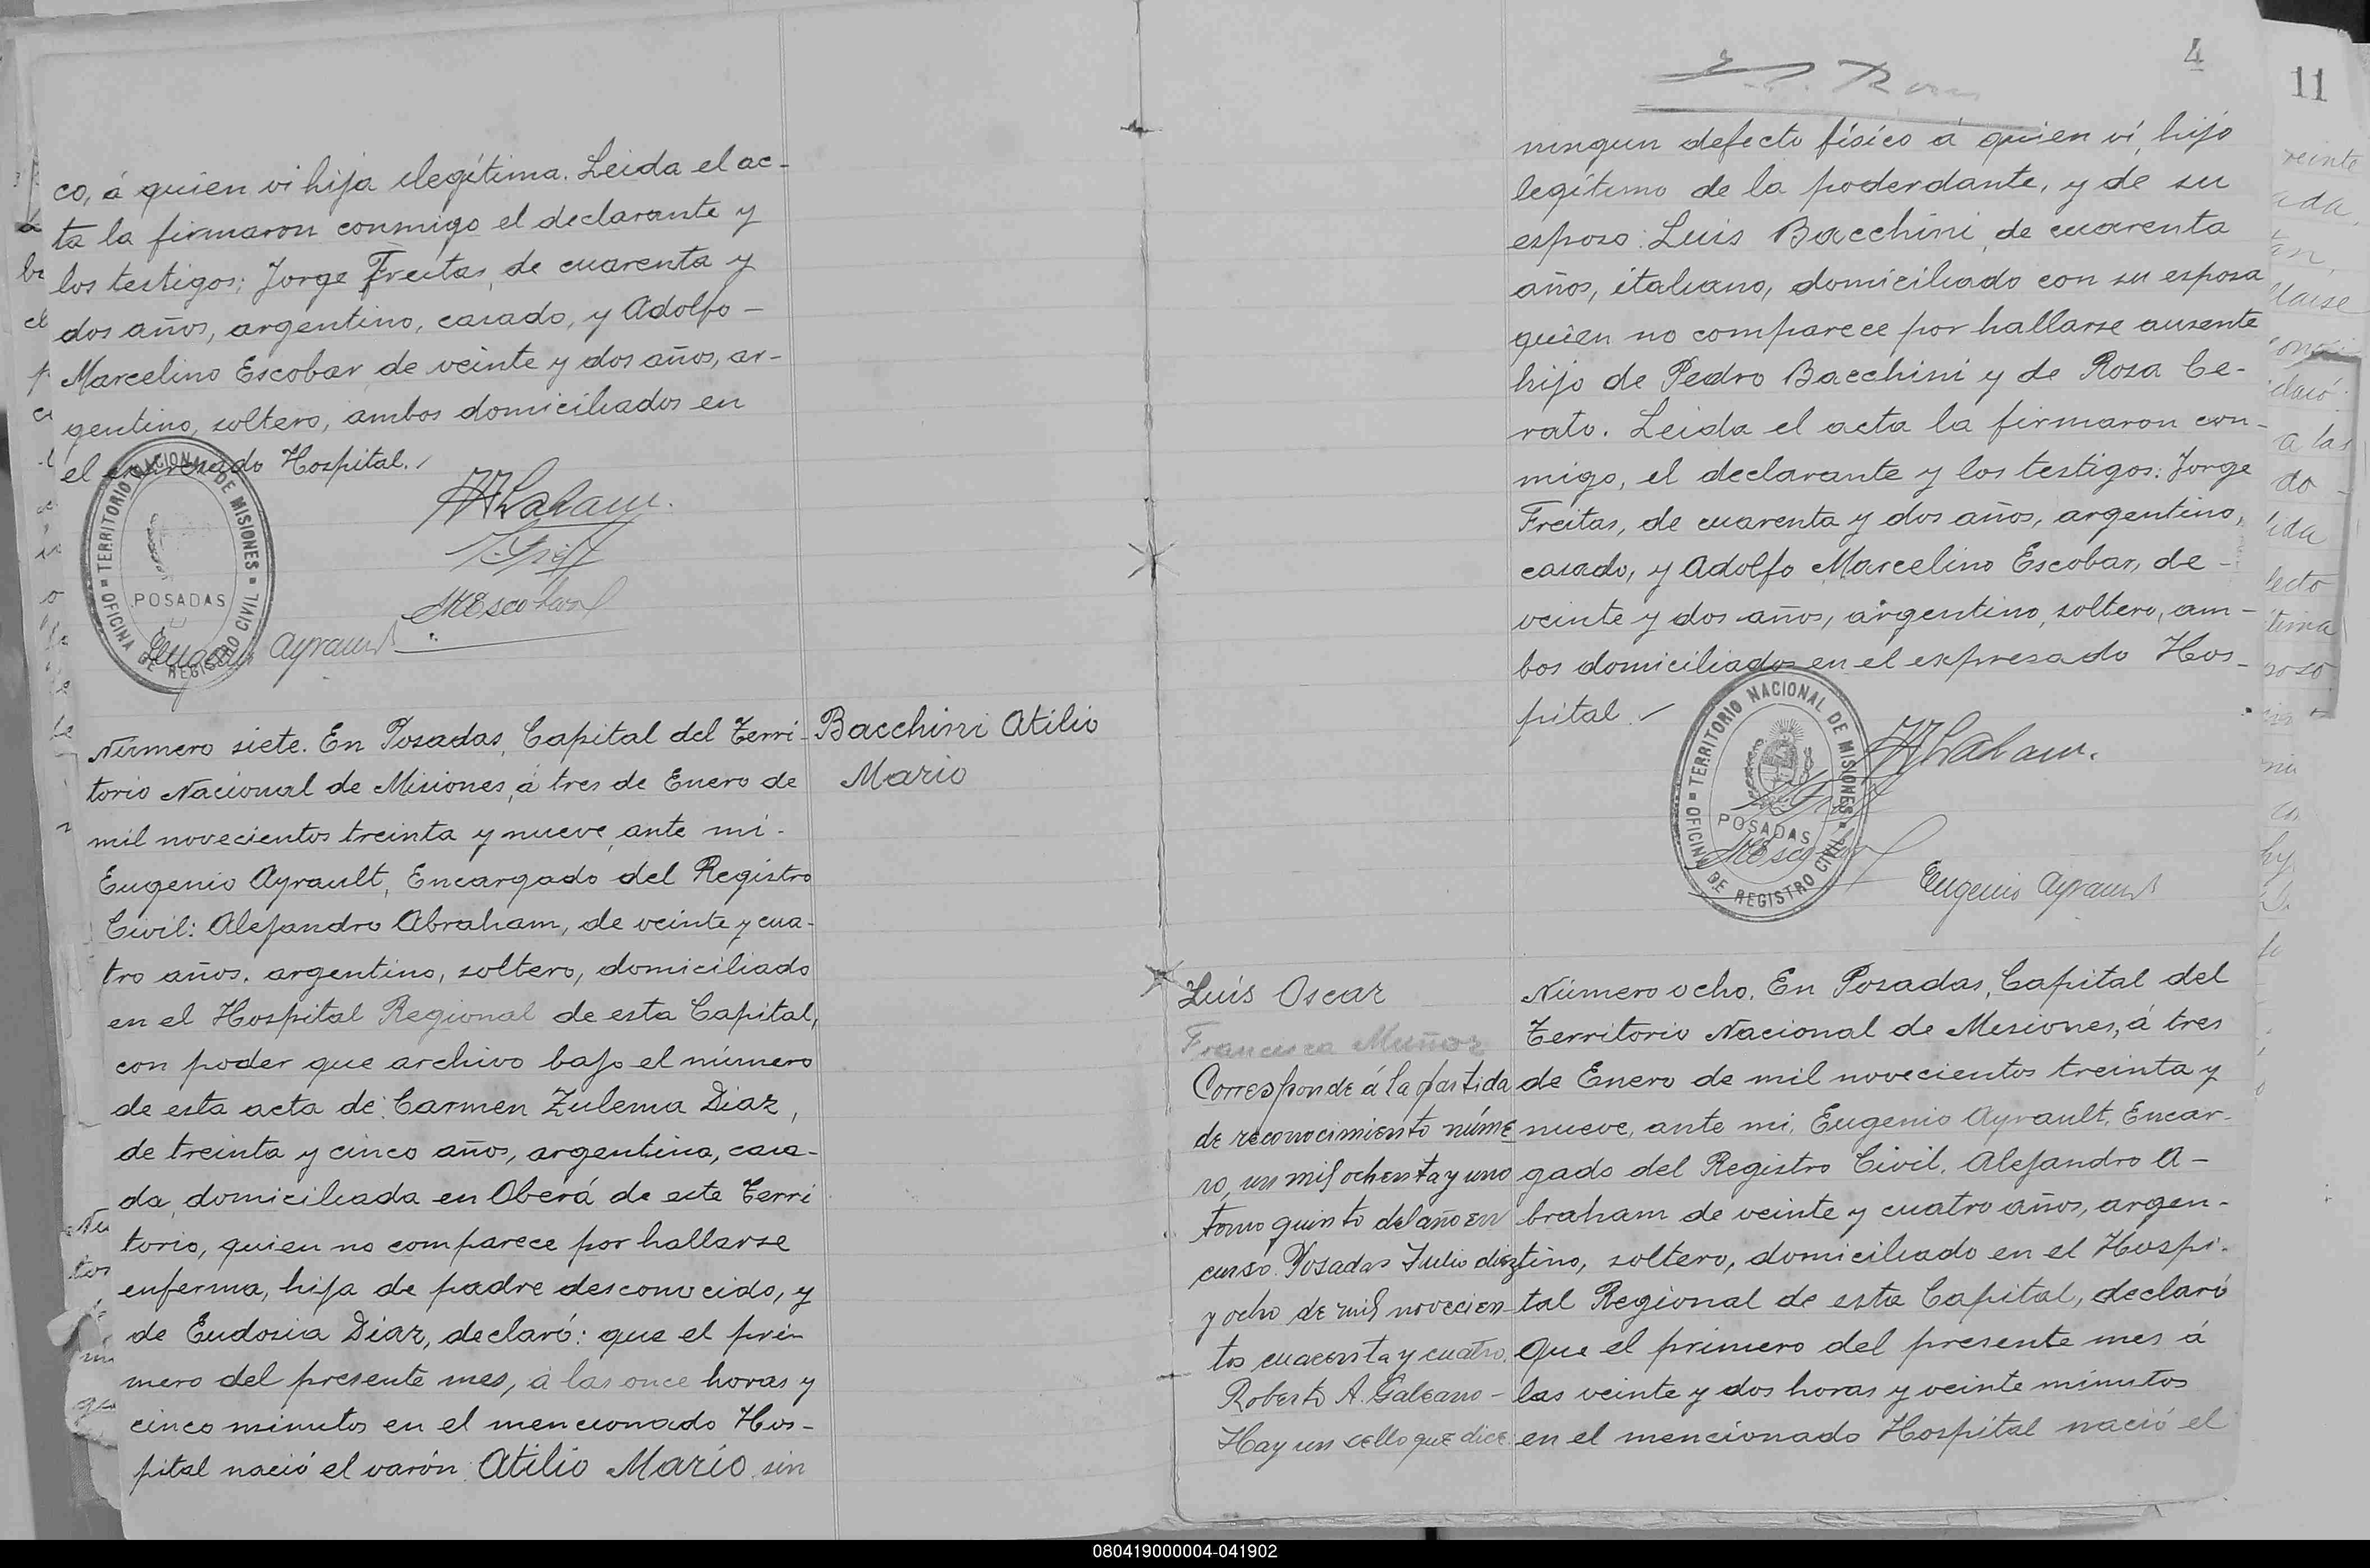 co, á quien vi hija ilegítima. Leida el ac-
ta la firmaron conmigo el declarante y
los testigos; Jorge Freitas, de cuarenta y
dos años, argentino, casado, y Adolfo -
Marcelino Escobar de veinte y dos años, ar-
gentino, soltero, ambos domiciliados en
el expresado Hospital.
TERRITORIO NACIONAL DE MISIONES
POSADAS
OFICINA DE REGISTRO CIVIL
MEscobar
Eugenio Ayrault
Número siete. En Posadas, Capital del Terri-
torio Nacional de Misiones, á tres de Enero de
mil novecientos treinta y nueve, ante mi -
Eugenio Ayrault, Encargado del Registro
Civil: Alejandro Abraham, de veinte y cua-
tro años. argentino, soltero, domiciliado
en el Hospital Regional de esta Capital,
con poder que archivo bajo el número
de esta acta de: Carmen Zulema Diaz,
de treinta y cinco años, argentina, casa-
da, domiciliada en Oberá de este Terri
torio, quien no comparece por hallarse
enferma, hija de padre desconocido, y
de Eudosia Diaz, declaró: que el pri-
mero del presente mes, á las once horas y
cinco minutos en el mencionado Hos-
pital nació el varón Atilio Mario sin
Bacchini Atilio
Mario
4
11
ningun defecto físico á quien ví, hijo
legítimo de la poderdante, y de su
esposo: Luis Bacchini, de cuarenta
años, italiano, domiciliado con su esposa
quien no comparece por hallarse ausente
hijo de Pedro Bacchini y de Rosa Ce-
rato. Leida el acta la firmaron con-
migo, el declarante y los testigos: Jorge
Freitas, de cuarenta y dos años, argentino,
casado, y Adolfo Marcelino Escobar, de -
veinte y dos años, argentino, soltero, am-
bos domiciliados en el expresado Hos-
pital.
TERRITORIO NACIONAL DE MISIONES
POSADAS
OFICINA DE REGISTRO CIVIL
MEscobar
Eugenio Ayrault
Luis Oscar
Francisca Muñoz
Corresponde á la partida
de reconocimiento núme
ro, un mil ochenta y uno
tomo quinto del año en
curso. Posadas Julio diez
y ocho de mil novecien-
tos cuarenta y cuatro.
Roberto A. Galeano -
Hay un sello que dice
Número ocho. En Posadas, Capital del
Territorio Nacional de Misiones, á tres
de Enero de mil novecientos treinta y
nueve, ante mi, Eugenio Ayrault, Encar-
gado del Registro Civil, Alejandro A-
braham de veinte y cuatro años, argen-
tino, soltero, domiciliado en el Hospi-
tal Regional de esta Capital, declaró
que el primero del presente mes á
las veinte y dos horas y veinte minutos
en el mencionado Hospital nació el
080419000004-041902